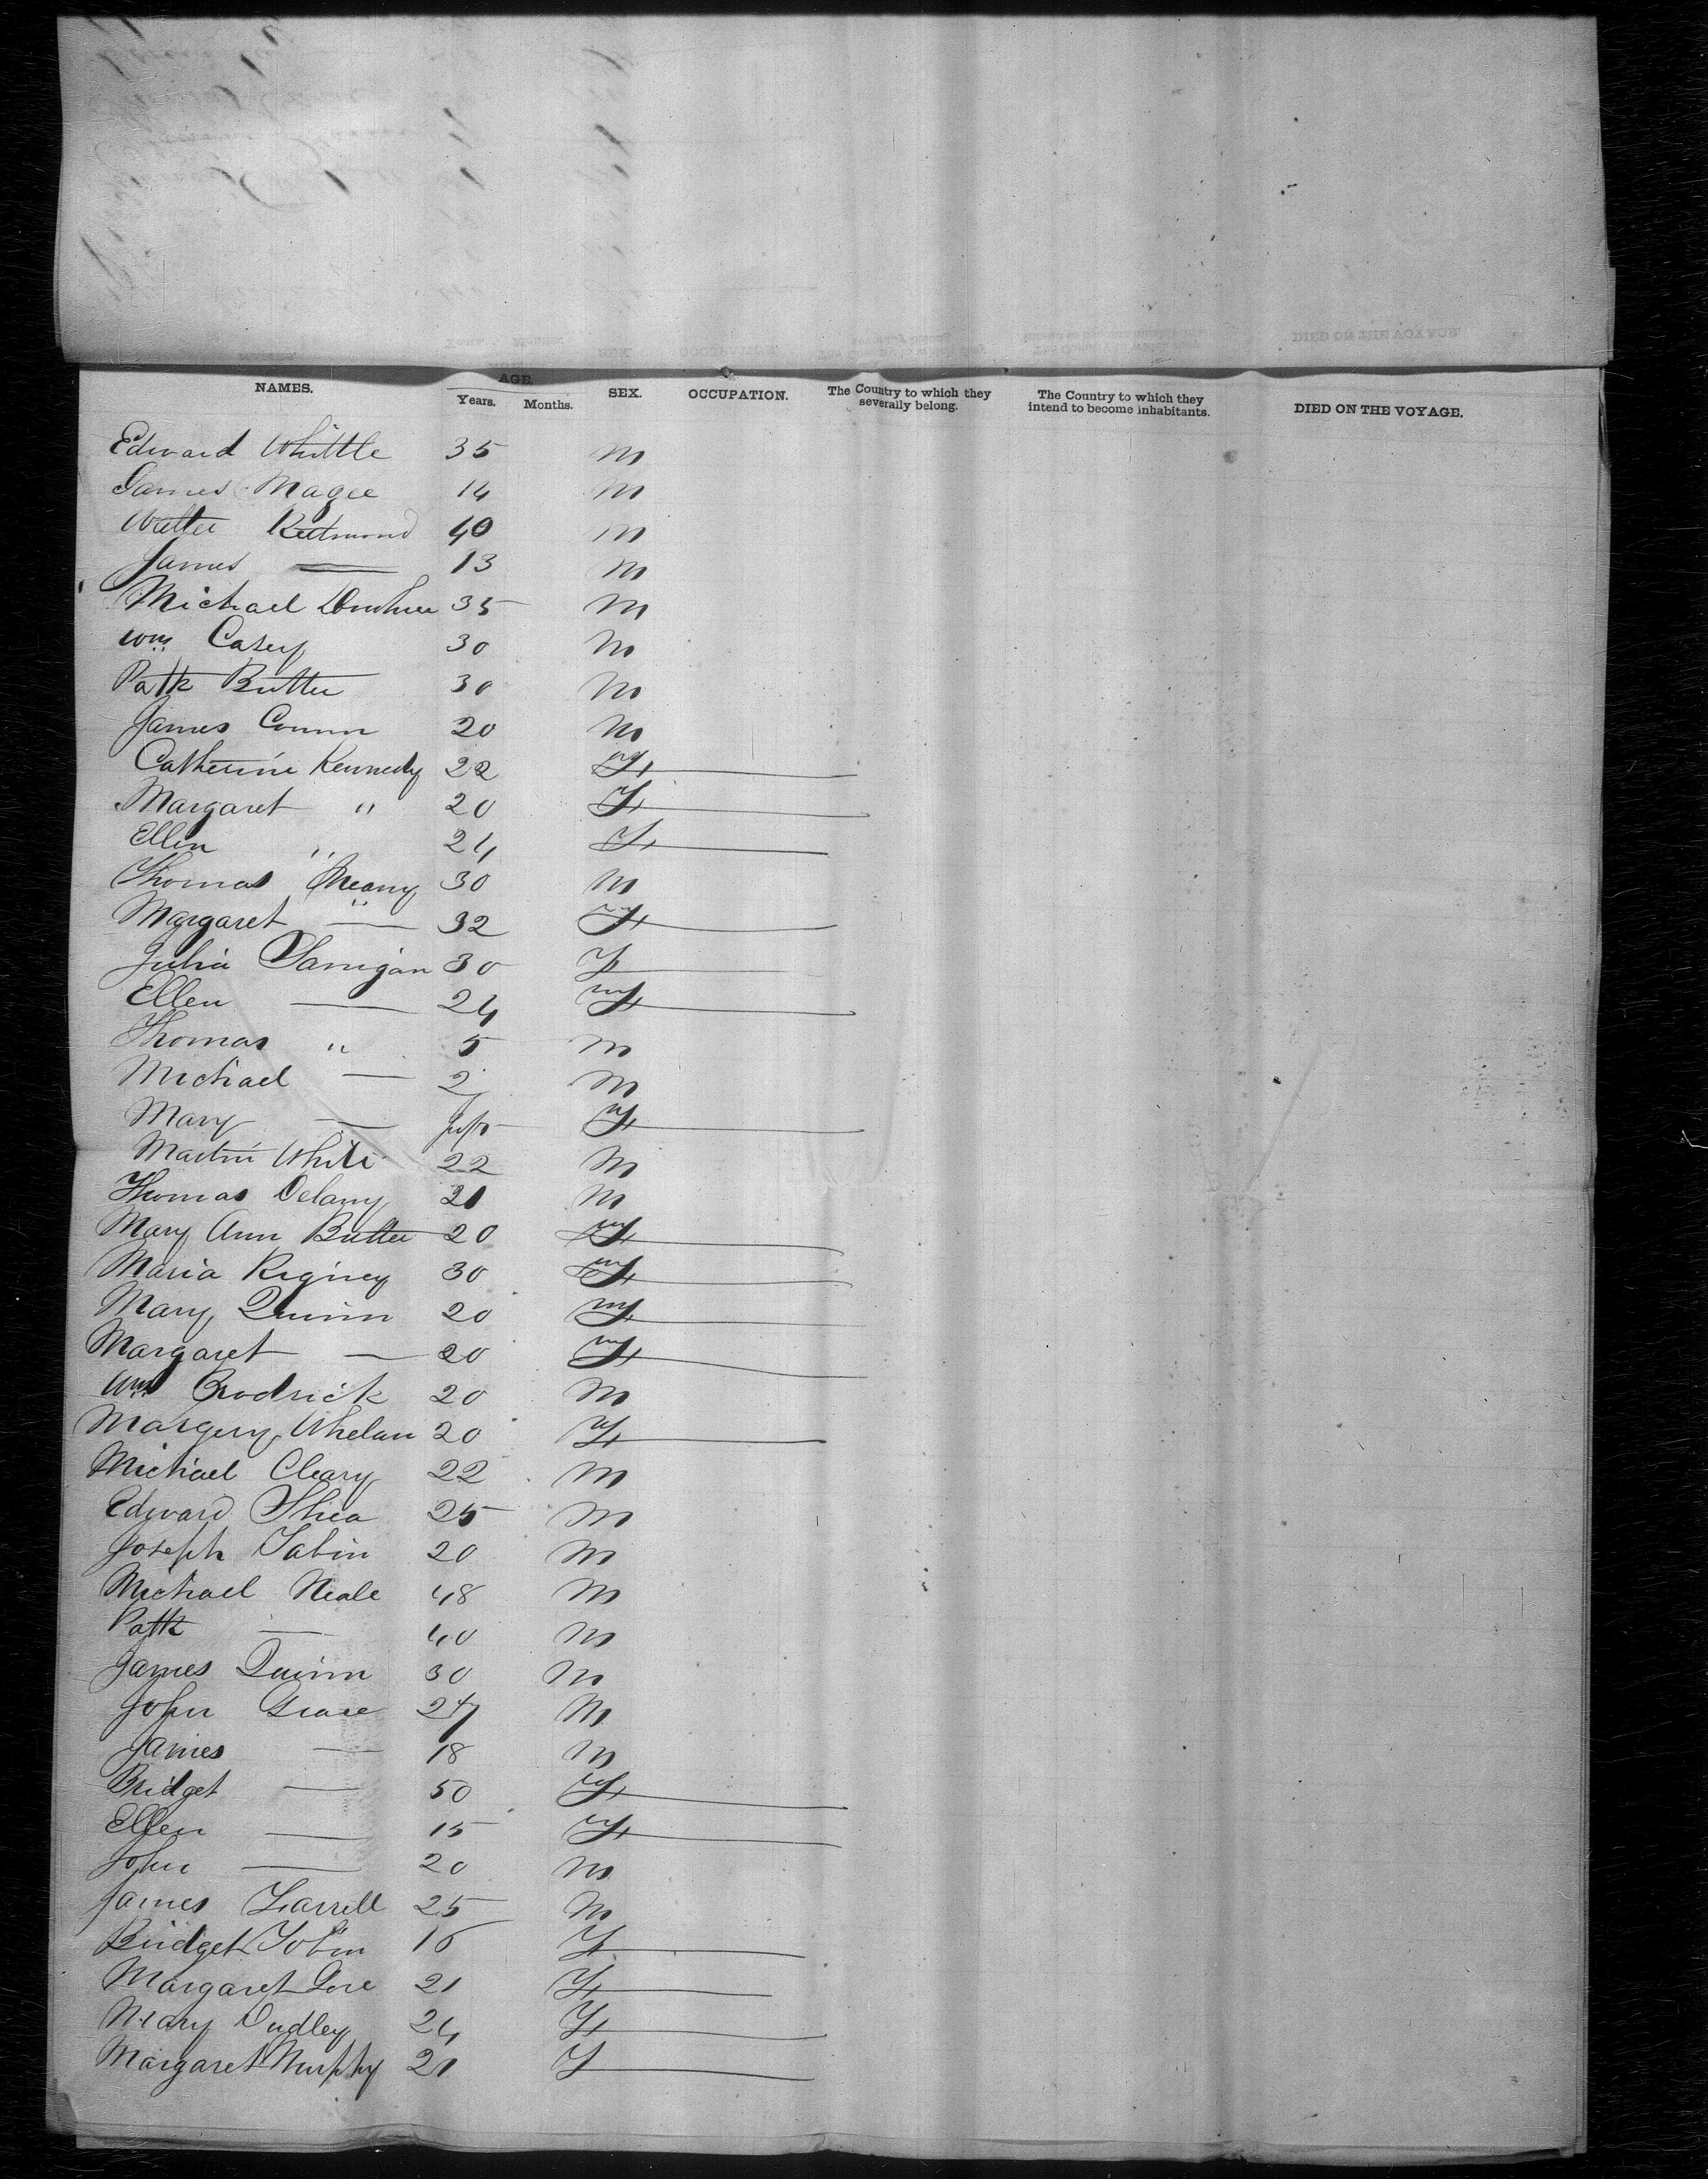 NAMES. AGE. SEX. OCCUPATION. The Country to which they severally belong. The Country to which they intend to become inhabitants. DIED ON THE VOYAGE.
Years. Months.
Edward Whittle 35 M
James Magee 14 M
Walter Redmond 40 M
James — 13 M
Michael 35 M
Wm Casey 30 M
Patk Butler 30 M
James 20 M
Catherine Kennedy 22 F
Margaret " 20 F
Ellen " 24 F
Thomas Meany 30 M
Margaret — 32 F
Julia Lanigan 30 F
Ellen — 24 F
Thomas " 5 M
Michael — 2 M
Mary — F
Martin White 22 M
Thomas Delany 21 M
Mary Ann Butler 20 F
Maria Rigney 30 F
Mary Quinn 20 F
Margaret — 20 F
Wm Brodrick 20 M
Margery Whelan 20 F
Michael Cleary 22 M
Edward Shea 25 M
Joseph Tabin 20 M
Michael Neale 48 M
Patk — 40 M
James Quinn 30 M
John Grace 27 M
James — 18 M
Bridget — 50 F
Ellen — 15 F
John — 20 M
James Farrell 25 M
Bridget Tobin 16 F
Margaret Dore 21 F
Mary Dudley 24 F
Margaret Murphy 21 F